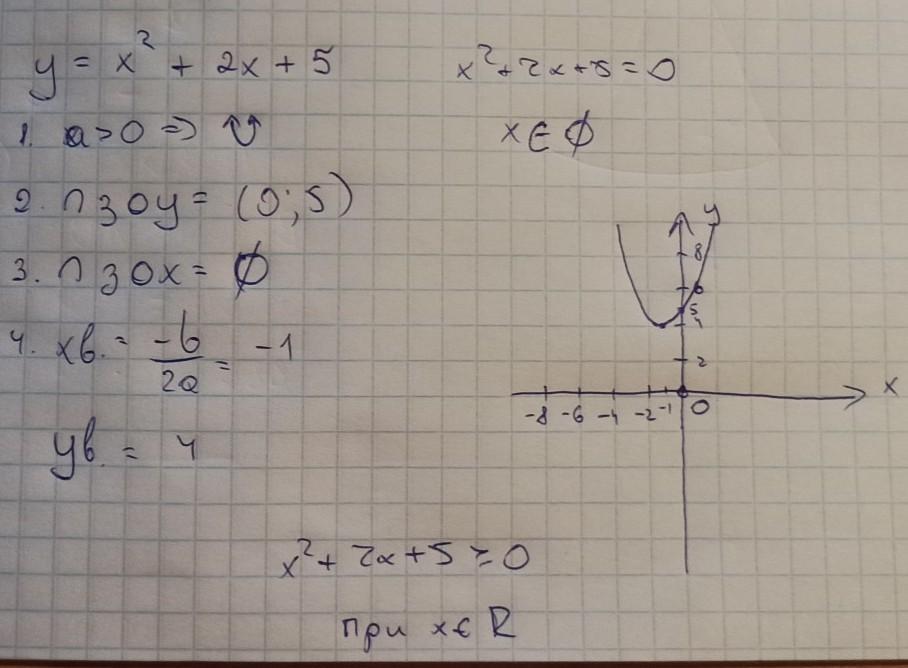 y = x² + 2x + 5
x²+2x+5=0
1. a>0 => ↑∪↑
x ∈ ∅
2. ∩ з OY = (0;5)
3. ∩ з OX = ∅
4. xв. = -b/2a = -1
yв. = 4
y
8
6
5
4
2
x
-8 -6 -4 -2 -1 0
x²+2x+5 ≥ 0
при x ∈ R